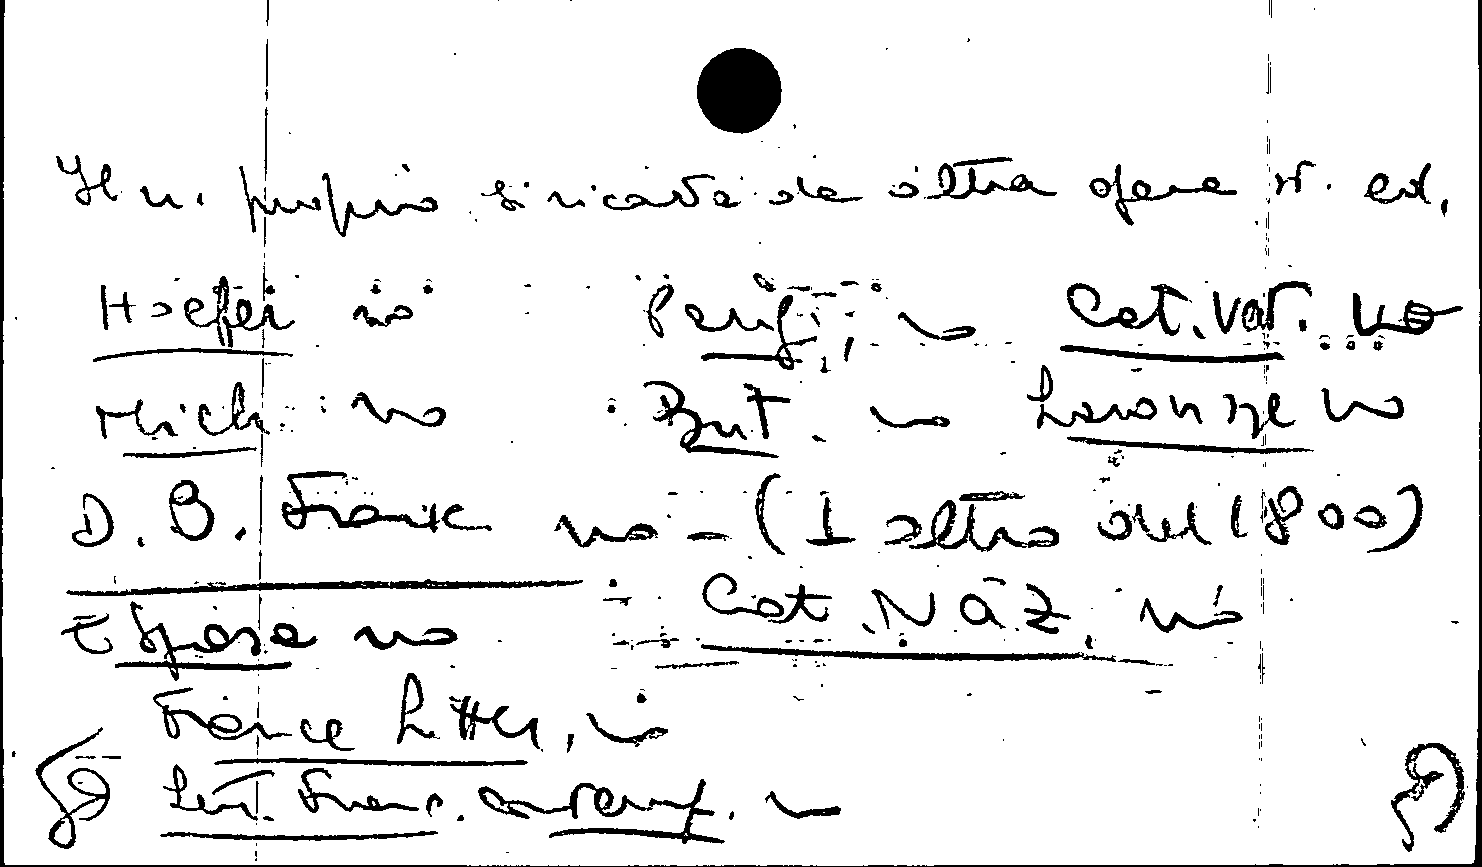 Il n. proprio si ricava da altra opera st. ed.
Hoefer no Parig. no Cat. Vat. no
Mich. no Brit. no Larousse no
D. B. Franc no - (1 altro del 1800)
Espasa no Cat. NAZ. no
France Litter, no
Litt. Franc. contemp. no